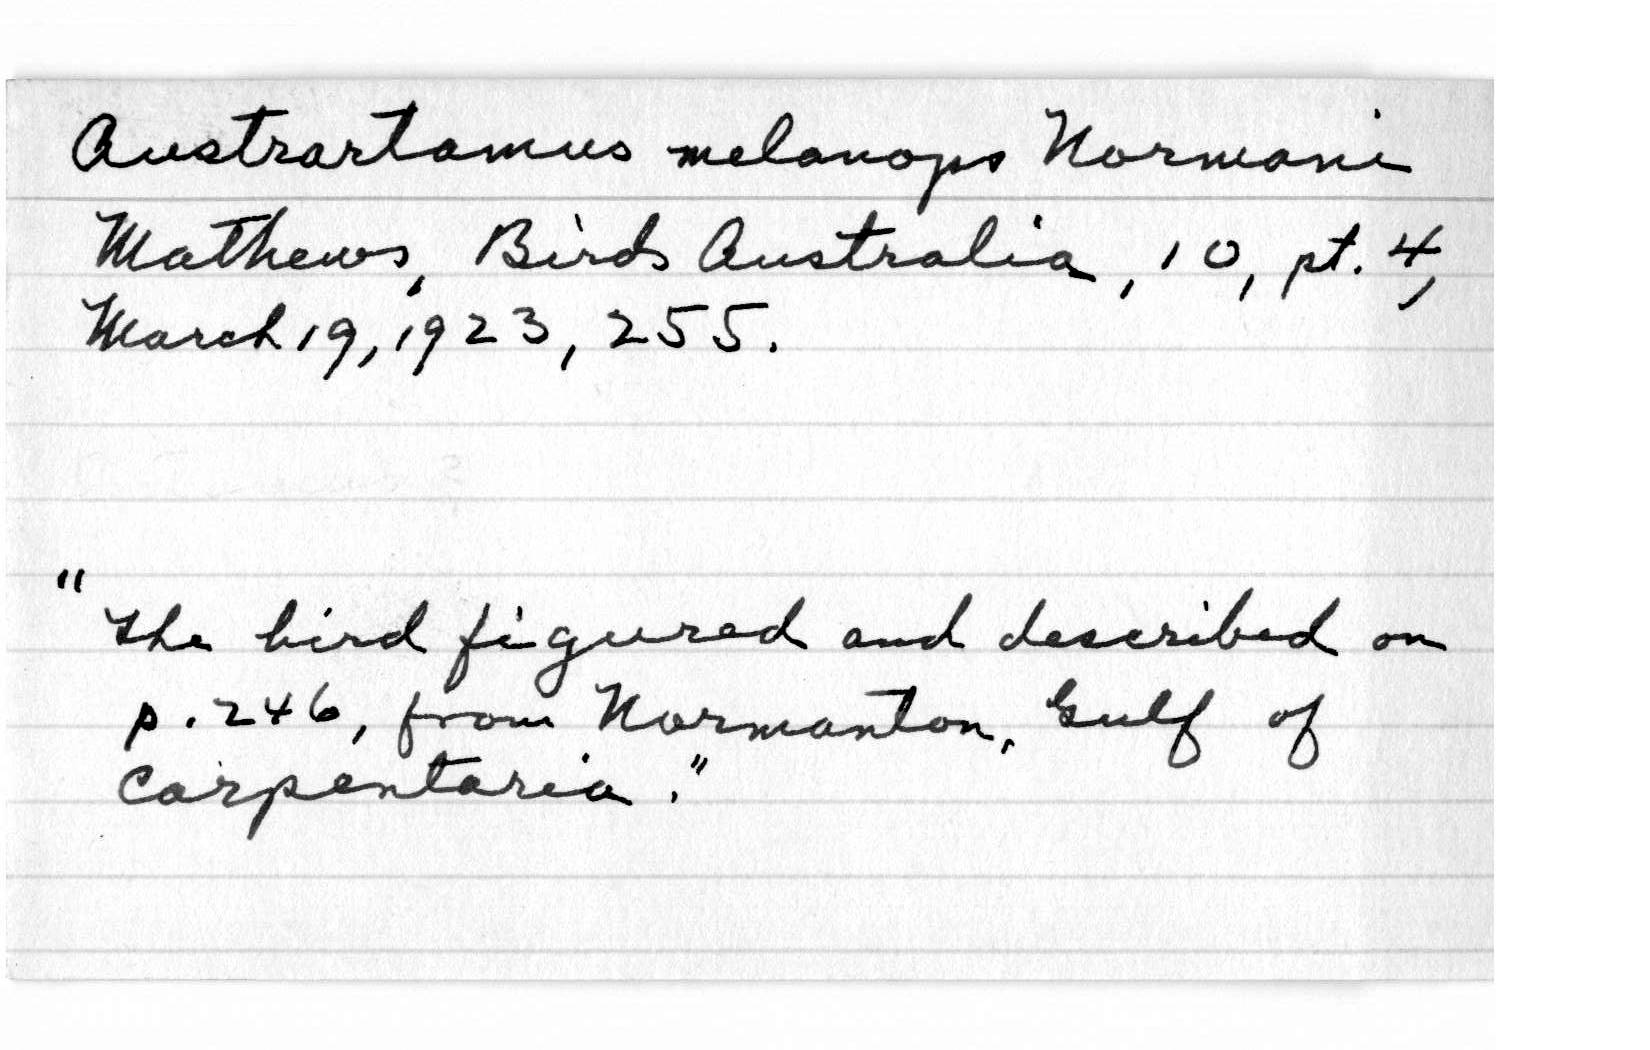 Austrartamus melanops Normani
Mathews, Birds Australia, 10, pt. 4,
March 19, 1923, 255.
"The bird figured and described on
p. 246, from Normanton, Gulf of
Carpentaria."